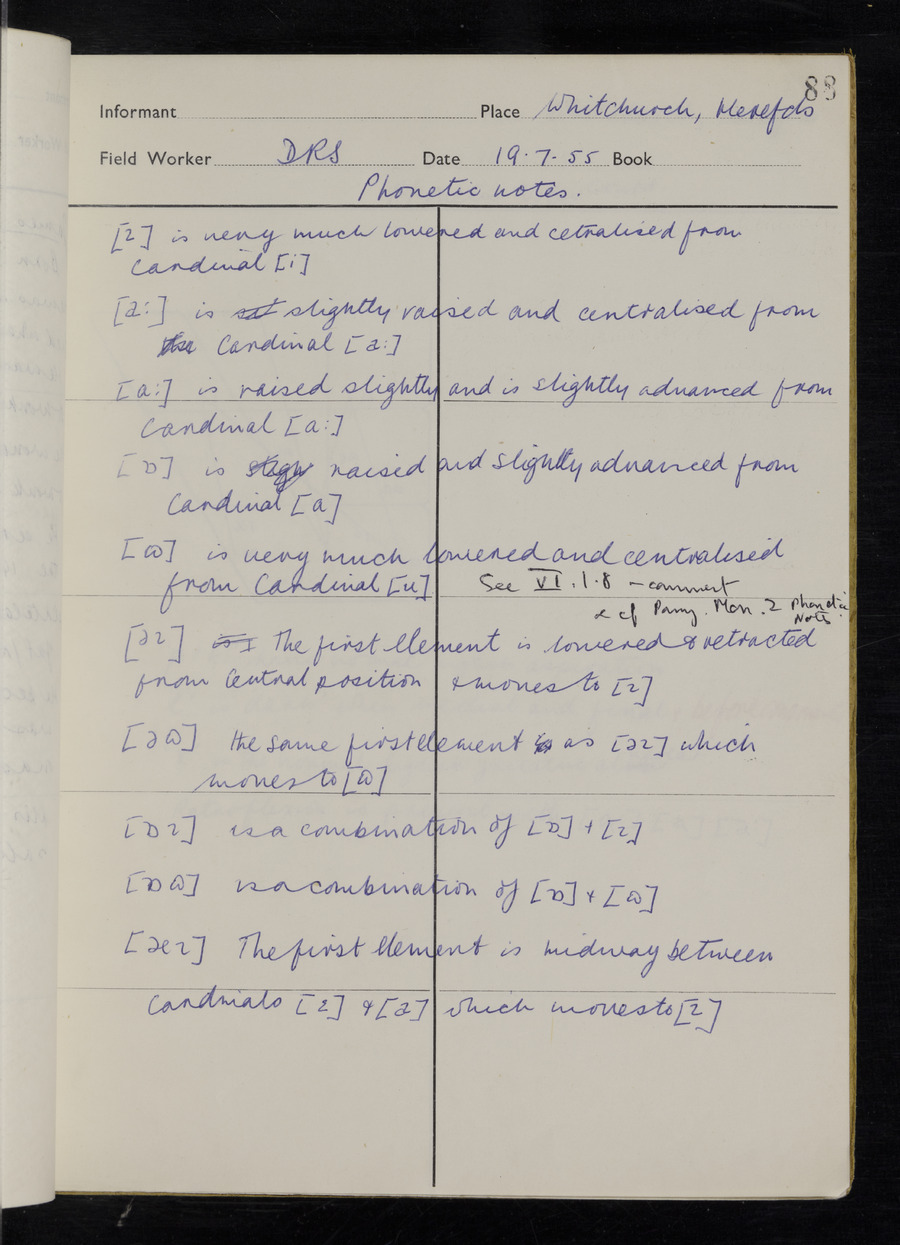 88
Informant Place Whitchurch, Herefds
Field Worker DRS Date 19.7.55 Book
Phonetic notes.
[ɪ] is very much lowered and cetralised from
Cardinal [i]
[a:] is slightly raised and centralised from
Cardinal [a:]
[ɑ:] is raised slightly and is slightly advanced from
Cardinal [ɑ:]
[ɒ] is raised and slightly advanced from
Cardinal [ɑ]
[ɷ] is very much lowered and centralised
from Cardinal [u] See VI.1.8 – comment
& cf Parry. Mon. 2 Phonetic
Notes.
[əɪ] The first element is lowered & retracted
from Central position & moves to [ɪ]
[əɷ] the same first element as [əɪ] which
moves to [ɷ]
[ɒɪ] is a combination of [ɒ] + [ɪ]
[ɒɷ] is a combination of [ɒ] + [ɷ]
[æɪ] The first element is midway between
Cardinals [ɛ] & [a] which moves to [ɪ]